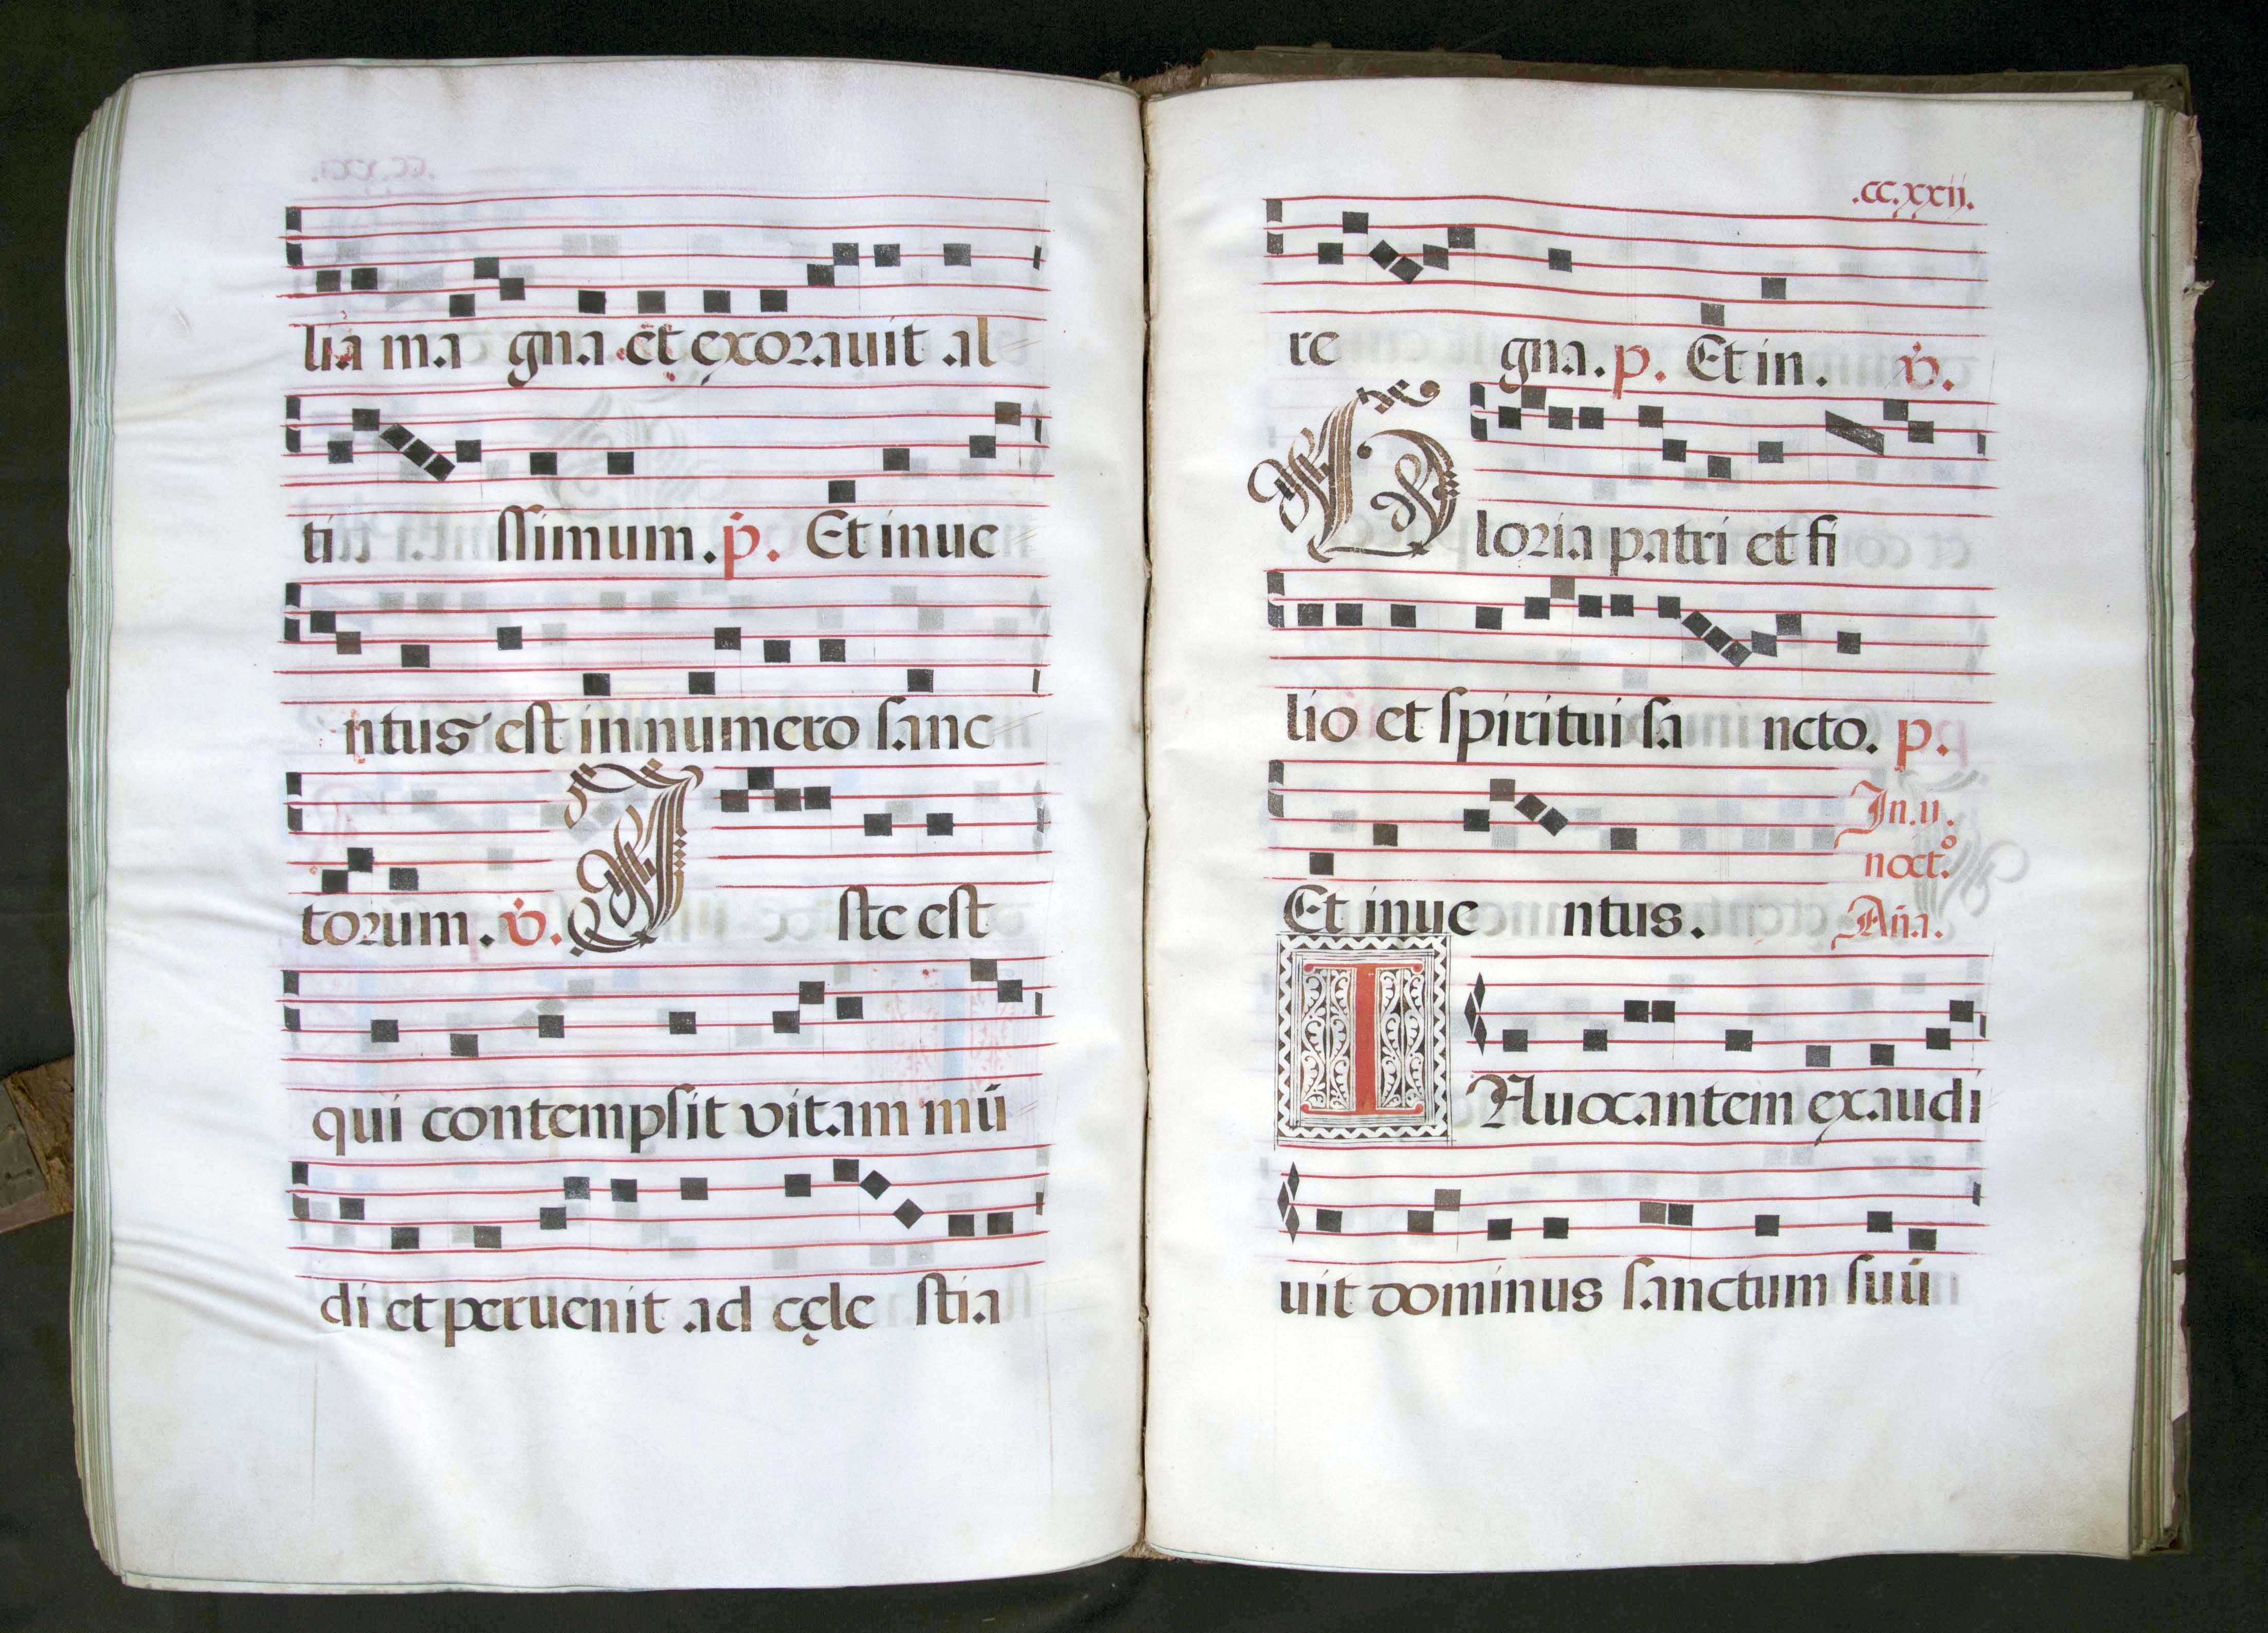 lia magna et exorauit al
ti ssimum. p. Et inue
ntus est in numero sanc
torum. v. Iste est
qui contempsit vitam mū
di et peruenit ad cęle stia
.cc.xxii.
re gna. p. Et in. v.
Gloria patri et fi
lio et spiritui sa ncto. p.
Et inue ntus. In .ii. noct.º Aña.
INuocantem exaudi
uit dominus sanctum suū